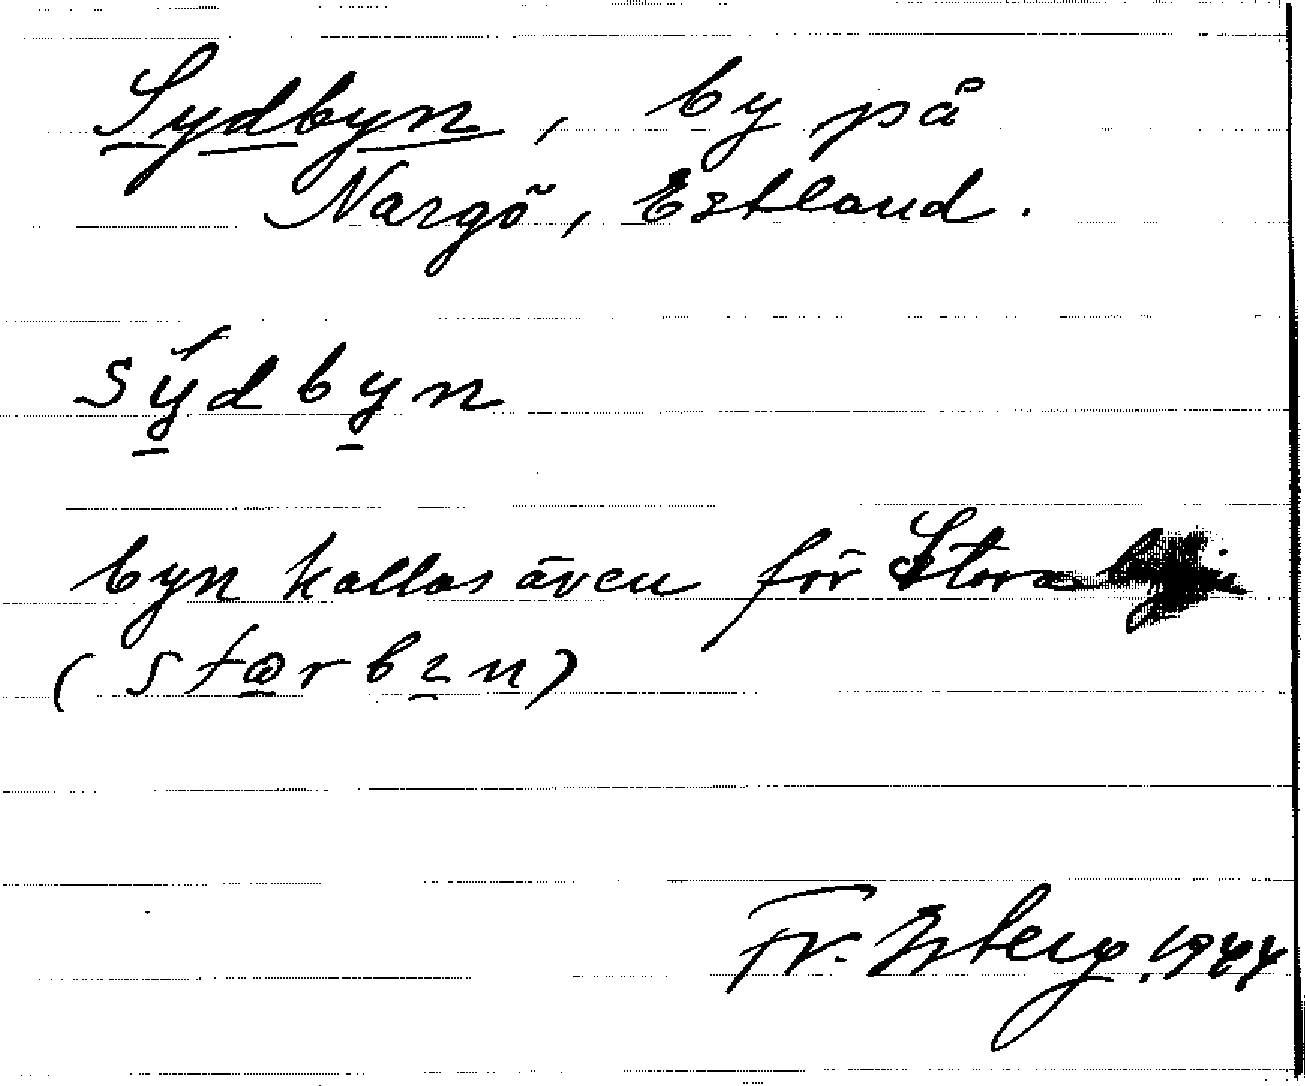 Sydbyn, by på
Nargö, Estland.
sýdbyn
byn kallas även för Stora byn
(stɷrbɿn)
Fr. Erberg. 1944